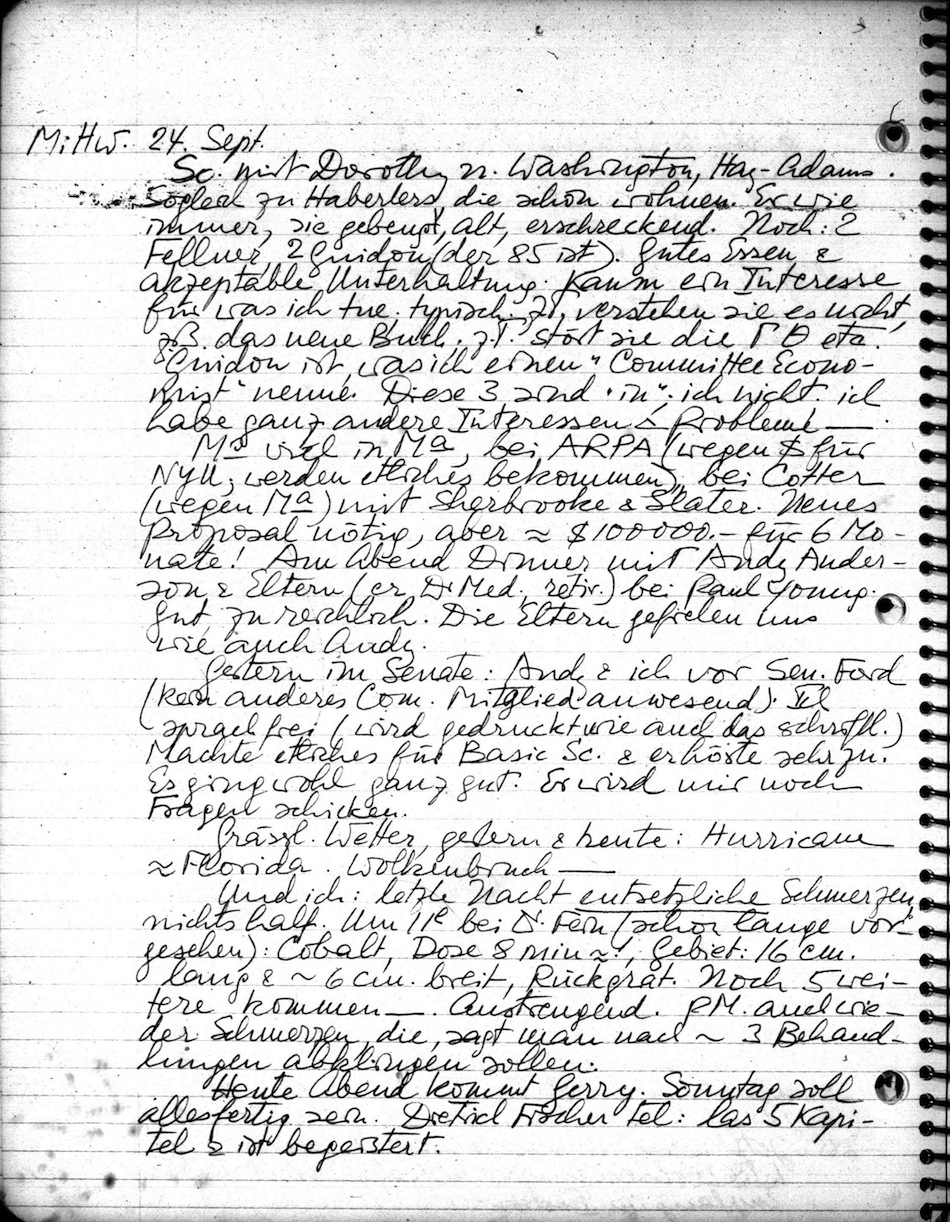 Mittw. 24. Sept.
So. mit Dorothy n. Washington, Hay-Adams.
Sogleich zu Haberlers, die schön wohnen. Er wie
immer, sie gebeugt, alt, erschreckend. Noch: 2
Fellner, 2 Guidon (der 85 ist). Gutes Essen &
akzeptable Unterhaltung. Kaum ein Interesse
für was ich tue. typisch. z.T. verstehen sie es nicht,
z.B. das neue Buch. z.T. stört sie die
Guidon ist, was ich einen "Committee Econo-
mist" nenne. Diese 3 sind "in", ich nicht. ich
habe ganz andere Interessen & Probleme —.
viel in Ma, bei ARPA (wegen $ für
NYU; werden etliches bekommen), bei Cotter
(wegen Ma) mit Sherbrooke & Slater. Neues
Proposal nötig, aber ≈ $100000.- für 6 Mo-
nate! Am Abend Dinner mit Andy Ander-
son & Eltern (er Dr Med., retir.) bei Paul Young.
Gut, zu reichlich. Die Eltern gefielen uns
wie auch Andy.
Gestern im Senate: Andy & ich vor Sen. Ford
(kein anderes Com. Mitglied anwesend). Ich
sprach frei (wird gedruckt wie auch das schriftl.)
Machte etliches für Basic Sc. & er hörte sehr zu.
Es ging wohl ganz gut. Er wird mir noch
Fragen schicken.
Grässl. Wetter, gestern & heute: Hurricane
≈ Florida. Wolkenbruch —
Und ich: letzte Nacht entsetzliche Schmerzen,
nichts half. Um 11 bei Dr. Fein (schon lange vor-
gesehen): Cobalt, Dose 8 min ≈!, Gebiet: 16 cm.
lang & ~ 6 cm. breit, Rückgrat. Noch 5 wei-
tere kommen —. Anstrengend. P.M. auch wie-
der Schmerzen, die, sagt man nach ~ 3 Behand-
lungen abklingen sollen.
Heute Abend kommt Gerry. Sonntag soll
alles fertig sein. Dietrich Fischer tel: las 5 Kapi-
tel & ist begeistert.